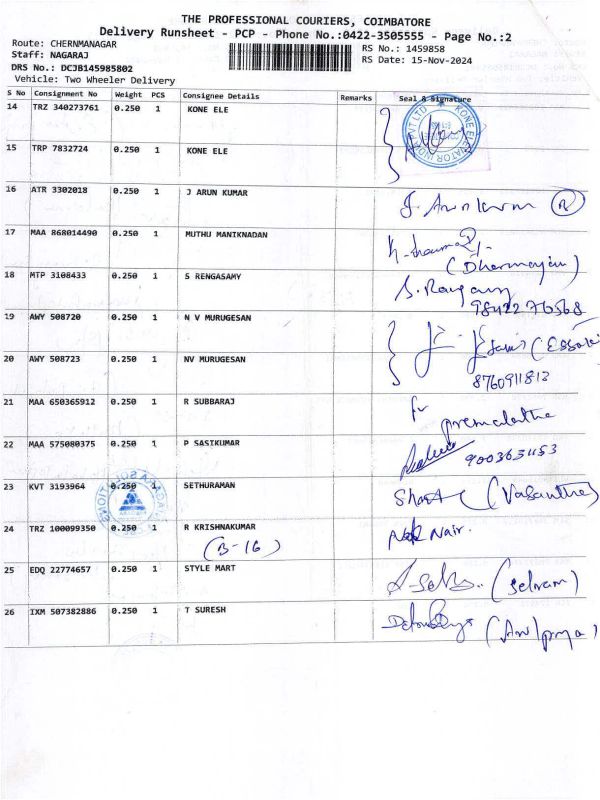 THE PROFESSIONAL COURIERS, COIMBATORE
Delivery Runsheet - PCP - Phone No.:0422-3505555 - Page No.:2
Route: CHERNMANAGAR
Staff: NAGARAJ
DRS No.: DCJB145985802
Vehicle: Two Wheeler Delivery
RS No.: 1459858
RS Date: 15-Nov-2024
S No Consignment No Weight PCS Consignee Details Remarks Seal & Signature
14 TRZ 340273761 0.250 1 KONE ELE
KONE ELEVATOR INDIA PVT LTD
15 TRP 7832724 0.250 1 KONE ELE
16 ATR 3302018 0.250 1 J ARUN KUMAR J. Arunkumar
17 MAA 868014490 0.250 1 MUTHU MANIKNADAN
(Dharmayan)
18 MTP 3108433 0.250 1 S RENGASAMY S. Rangasamy
98422 76568
19 AWY 508720 0.250 1 N V MURUGESAN
20 AWY 508723 0.250 1 NV MURUGESAN
8760911813
21 MAA 650365912 0.250 1 R SUBBARAJ for
premalatha
22 MAA 575080375 0.250 1 P SASIKUMAR 9003631153
23 KVT 3193964 0.250 1 SETHURAMAN (Vasantha)
24 TRZ 100099350 0.250 1 R KRISHNAKUMAR Nair.
(B-16)
25 EDQ 22774657 0.250 1 STYLE MART (Selvam)
26 IXM 507382886 0.250 1 T SURESH